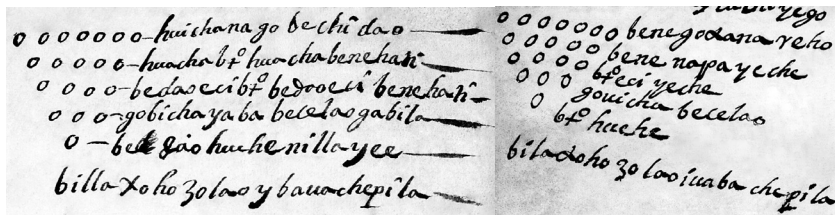 o oooooo-huichana go bechi dao
o oooo-huacha bto huacha benehati
o ooo-bedao eci bto bedoo eci benehati
o oo-gobicha yaba becelao gabila
o-huche nilla yee
billa xoho zolao y baua chepila
ooooooo benegodana yeho
oooooo bene napa yeche
ooooo bto eci yeche
ooo gouicha becelao
o bto huehe
bilaxoho zolao iuaba chepila